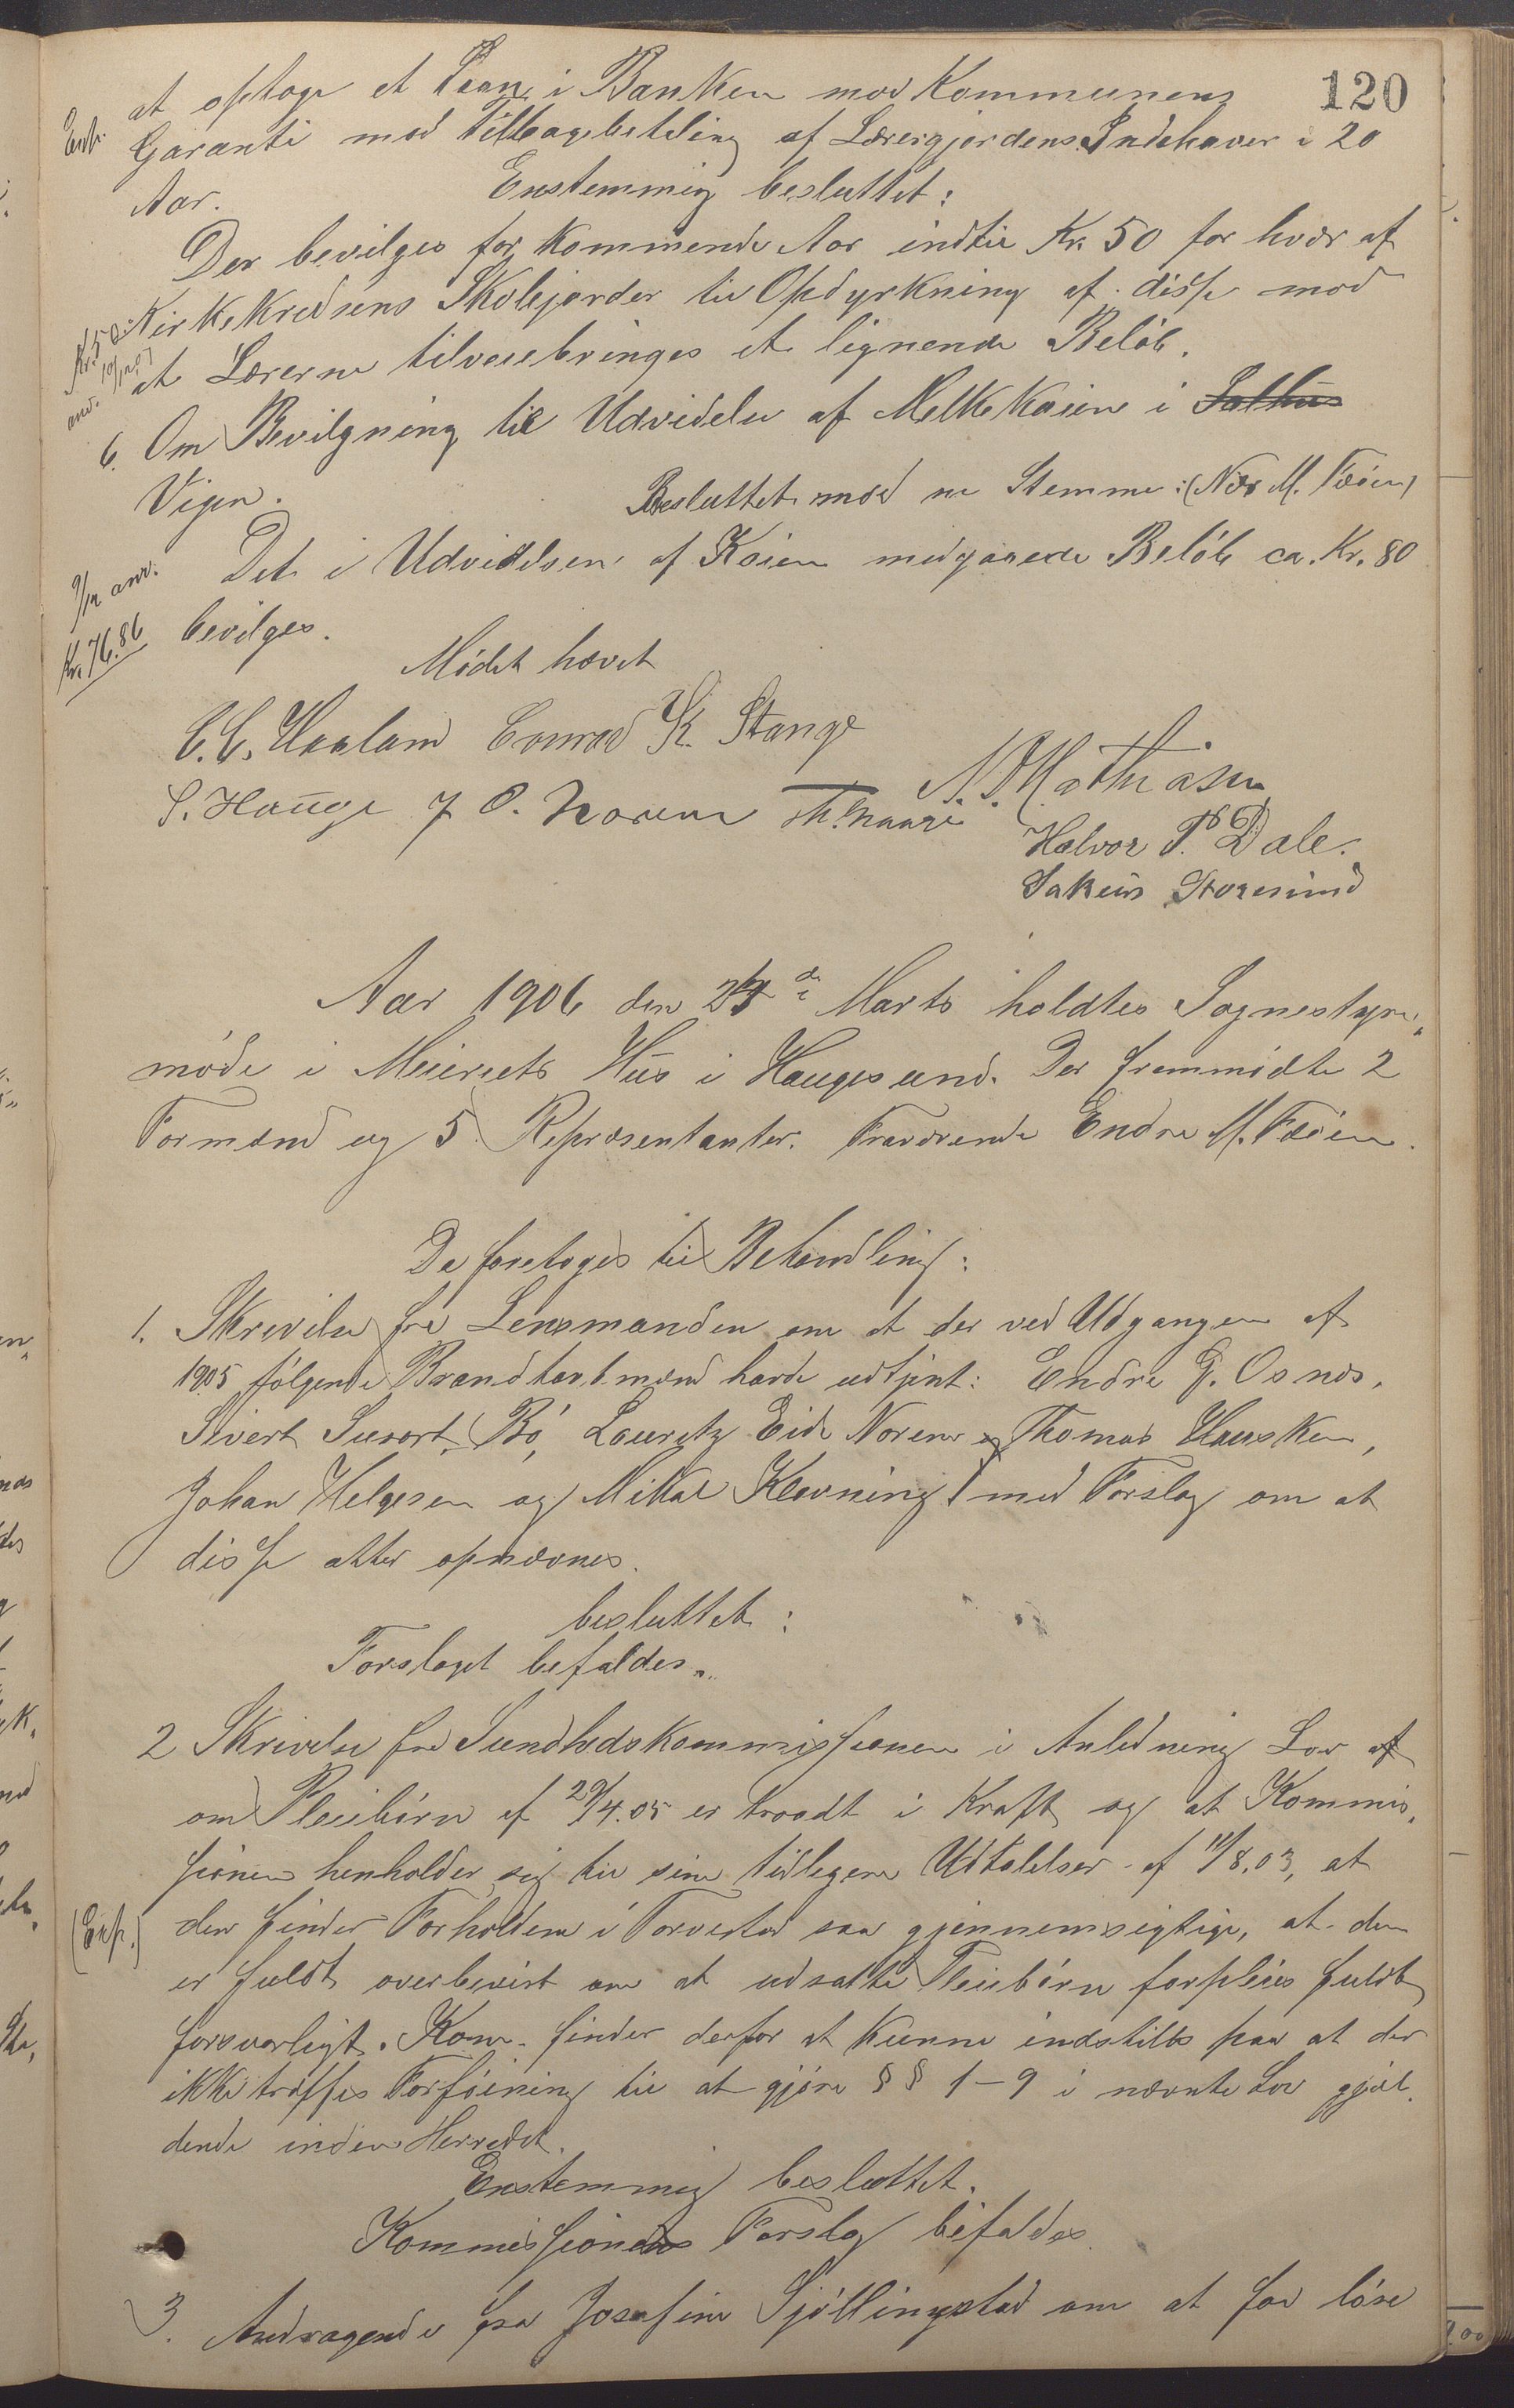 120
at optage et Laan i Banken mod Kommunens
Garanti mod Tilbagebetaling af Lærergjordens Indehaver i 20
Aar. Enstemmig besluttet:
Der bevilges for kommende Aar indtil Kr. 50 for hver af
Kirkekredsens Skolejorder til Opdyrkning af disse mod
at Lærerne tilveiebringes et lignende Beløb.
Kr. 50
anv.
6. Om Bevilgning til Udvidelse af Melkekaien i Salhus
Vigen. Besluttet mod en Stemme: (Næs M. Fæøen)
Det i Udvidelsen af Kaien medgaaede Beløb ca. Kr. 80
bevilges.
9/12 anv.
Kr. 76.86
Mødet hævet
C. C. Haaland Conrad K. Stange
N. J. Mathiasen
S. Hauge J. O. Norene
Halvor P. Dale.
Sakeus Storesund
Aar 1906 den 24de Marts holdtes Sognestyre-
møde i Meieriets Hus i Haugesund. Der fremmødte 2
Formænd og 5 Repræsentanter. Fraværende Endre M. Fæøen.
Da foretoges til Behandling:
1. Skrivelse fra Lensmanden om at der ved Udgangen af
1905 følgende Brandtaxtmænd havde udtjent: Endre G. Osnes,
Sivert Susort, Bø, Lauritz Eide Norene og Thomas Hausken,
Johan Helgesen og Mikal Kløvning med Forslag om at
disse atter opnævnes.
besluttet:
Forslaget bifaldes.
2 Skrivelse fra Sundhedskommissionen i Anledning Lov af
om Pleiebørn af 29/4.05 er traadt i Kraft og at Kommis-
sionen henholder sig til sine tidligere Udtalelser af 11/8.03, at
den finder Forholdene i Torvestad saa gjennemsigtige, at den
(Exp.)
er fuldt overbevist om at udsatte Pleiebørn forpleies fuldt
forsvarligt. Kom. finder derfor at kunne indstille paa at der
ikke træffes Forføining til at gjøre §§ 1-9 i nævnte Lov gjæl-
dende inden Herredet.
Enstemmig besluttet.
Kommissionens Forslag bifaldes.
3. Andragende fra Josefine Sjøllingstad om at faa løse